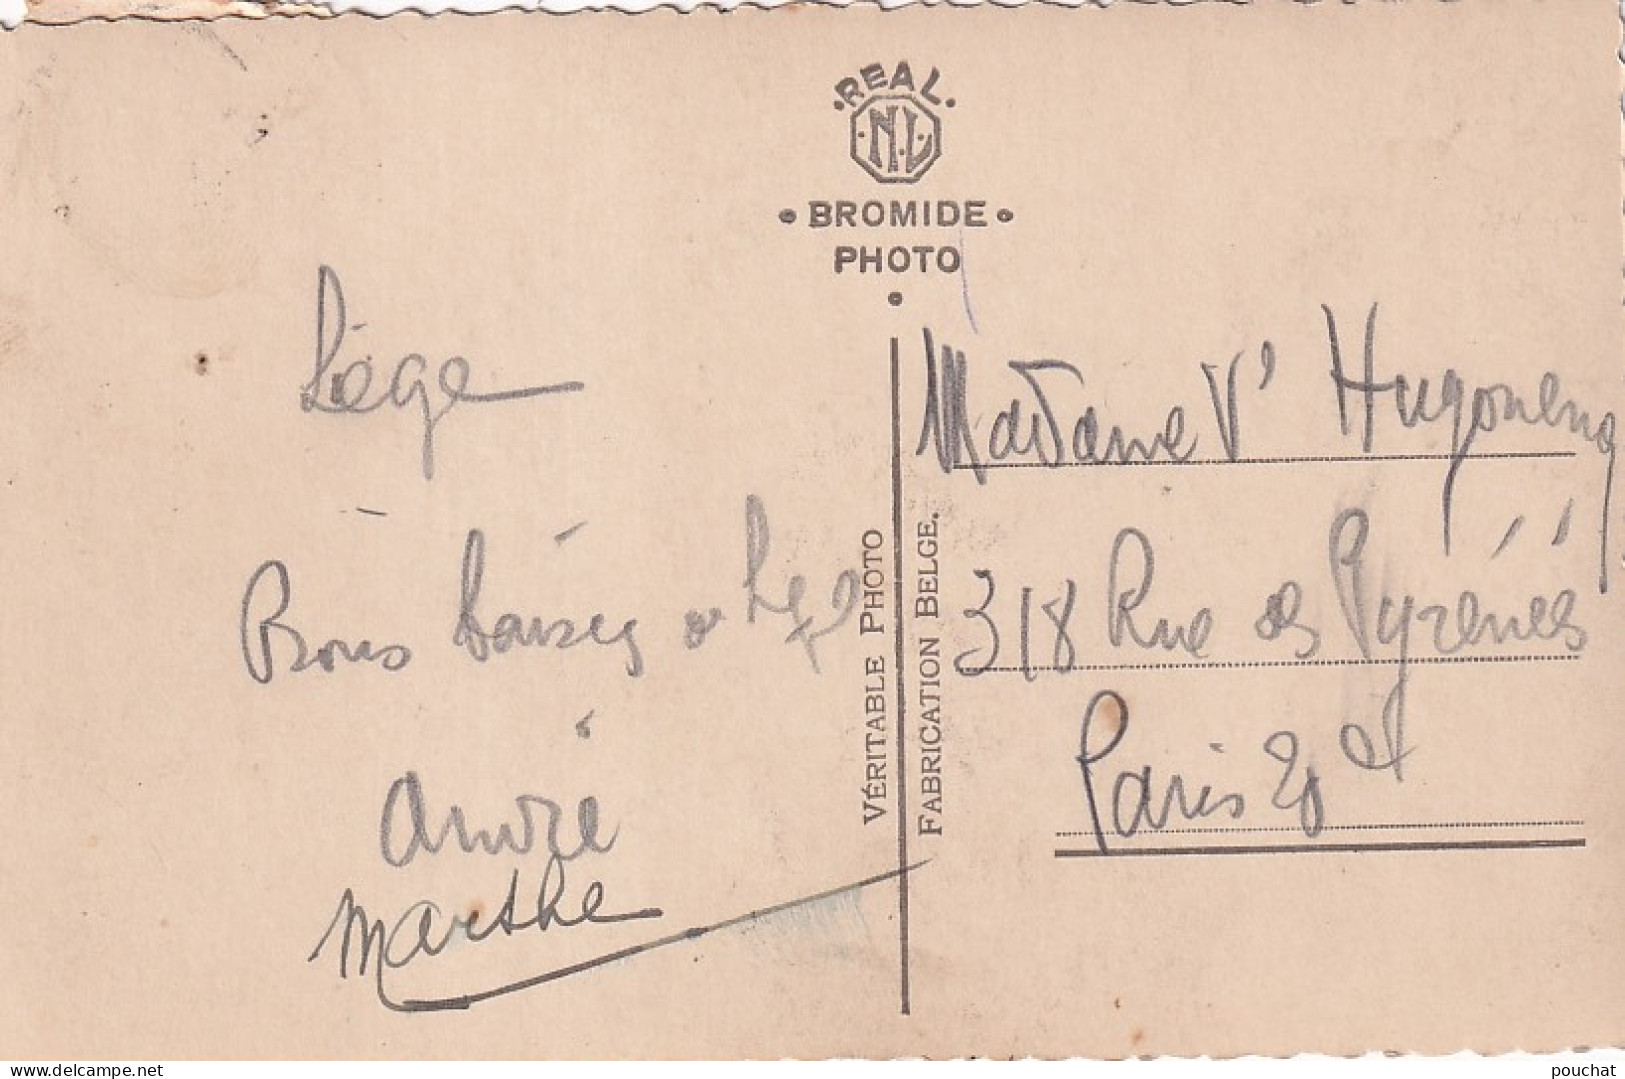 • REAL •
• N • L •
• BROMIDE •
PHOTO
Liège
Bons baisers de Liège
André
Marthe
VÉRITABLE PHOTO
FABRICATION BELGE.
Madame Vᵉ
318 Rue des Pyrénées
Paris 20 e
delcampe.net
pouchat